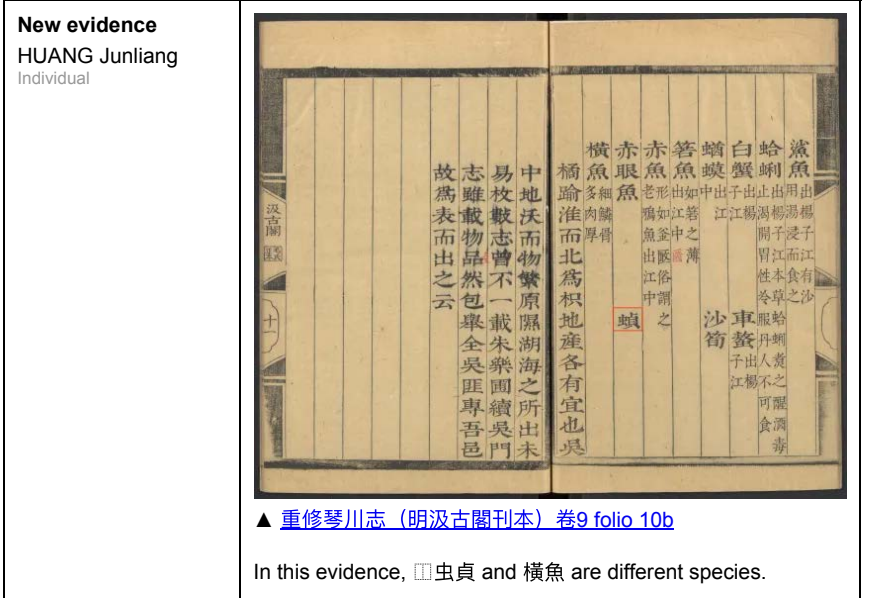 New evidence
HUANG Junliang
Individual
鯊魚出楊子江有沙用湯浸而食之
蛤蜊出楊子江本草蛤蜊煑之醒酒毒止渴開胃性冷服丹人不可食
白蟹出楊子江 車螯出楊子江
蝤蟆出江中 沙筍
箬魚如箬之薄出江中
赤魚形如釜俗謂之老鴉魚出江中
赤眼魚 ⿰虫貞
橫魚細鱗骨多肉厚
橘踰淮而北爲枳地産各有宜也吳
中地沃而物繁原隰湖海之所出未
易枚數志曾不一載朱樂圃續吳門
志雖載物品然包舉全吳匪專吾邑
故爲表而出之云
汲古閣
十一
▲ 重修琴川志（明汲古閣刊本）卷9 folio 10b
In this evidence, ⿰虫貞 and 橫魚 are different species.